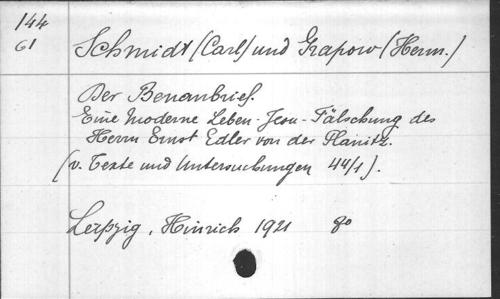 144
61
Schmidt (Carl) und Grapow (Herm.)
Der Benanbrief.
Eine moderne Leben-Jesu-Fälschung des
Herrn Ernst Edler von der Planitz.
(v. Texte und Untersuchungen 44/1).
Leipzig, Hinrich 1921 8o